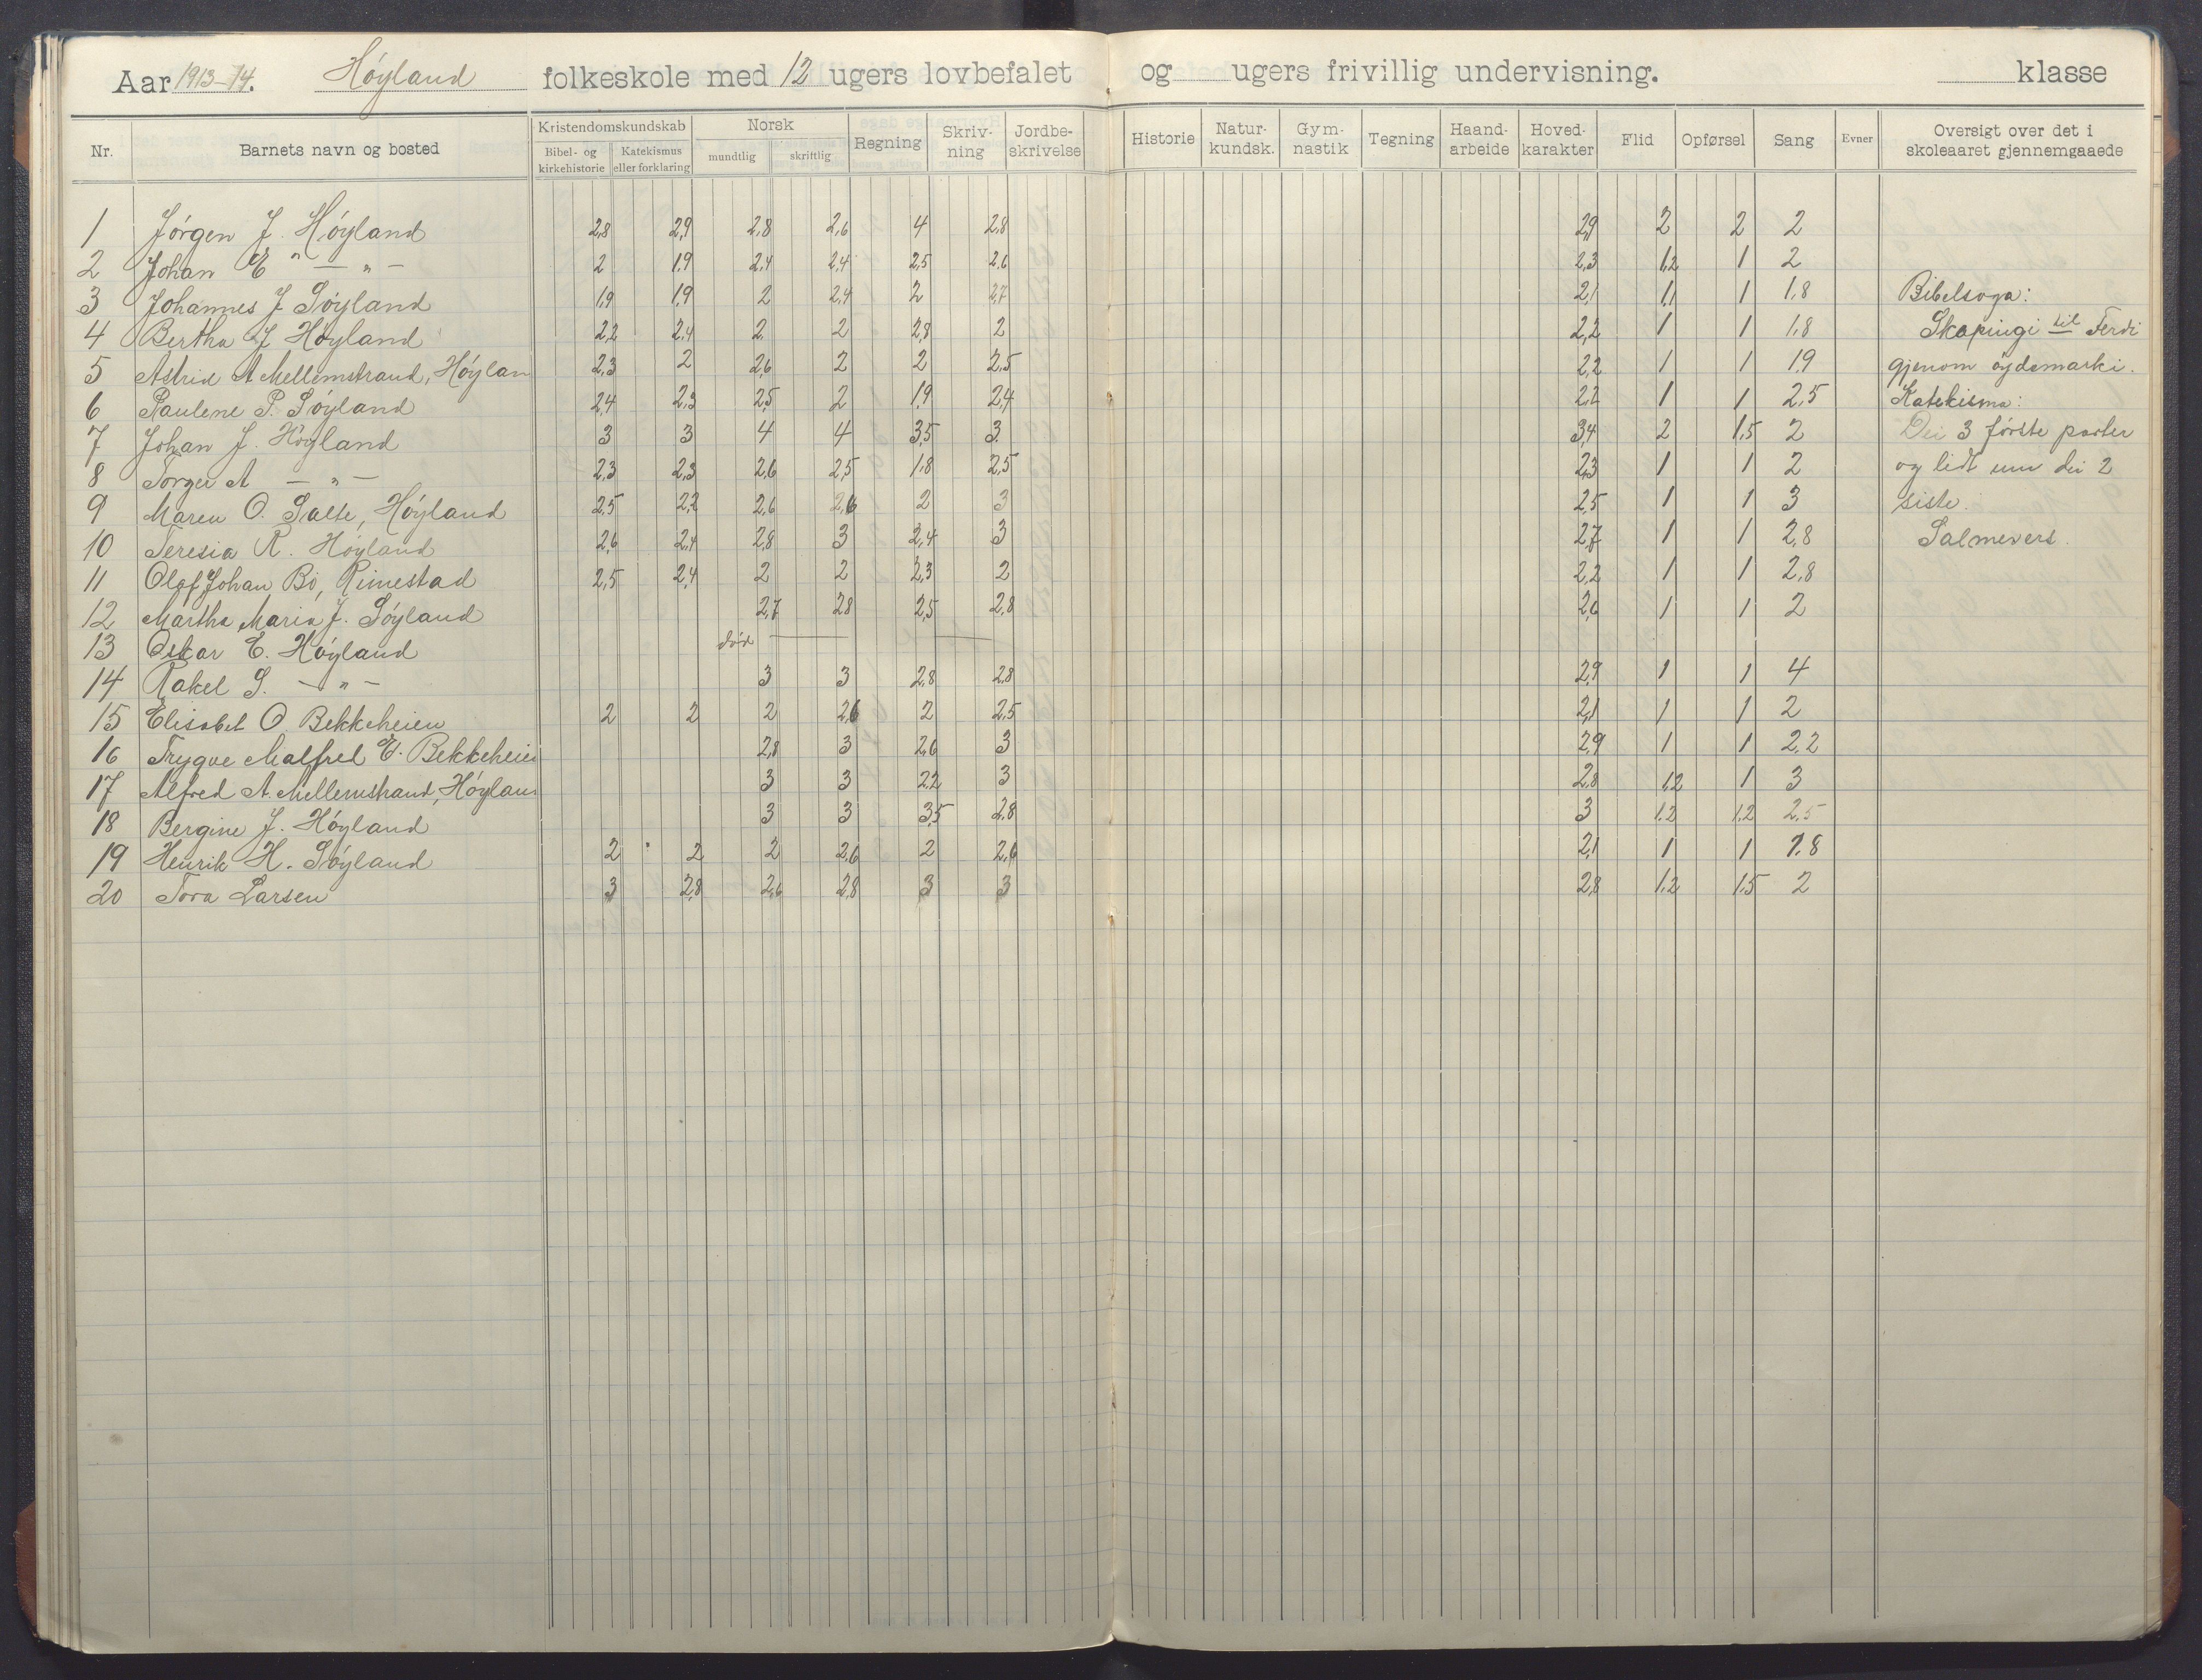 Aar 1913-14. Høyland folkeskole med 12 ugers lovbefalet og ugers frivillig undervisning. klasse
Nr. Barnets navn og bosted Kristendomskundskab Bibel- og kirkehistorie Katekismus eller forklaring Norsk mundtlig skriftlig Regning Skriv-ning Jordbe-skrivelse Historie Natur-kundsk. Gym-nastik Tegning Haand-arbeide Hoved-karakter Flid Opførsel Sang Evner Oversigt over det i skoleaaret gjennemgaaede
1 Jørgen J. Høyland 2,8 2,9 2,8 2,6 4 2,8 2,9 2 2 2
2 Johan E " — " — 2 1,9 2,4 2,4 2,5 2,6 2,3 1,2 1 2
3 Johannes J Søyland 1,9 1,9 2 2,4 2 2,7 2,1 1,1 1 1,8 Bibelsoga:
4 Bertha J Høyland 2,2 2,4 2 2 2,8 2 2,2 1 1 1,8 Skapingi til Ferdi
5 Astrid A Mellemstrand, Høylan 2,3 2 2,6 2 2 2,5 2,2 1 1 1,9 gjenom øydemarki.
6 Paulene P. Søyland 2,4 2,3 2,5 2 1,9 2,4 2,2 1 1 2,5 Katekisma:
7 Johan J. Høyland 3 3 4 4 3,5 3 3,4 2 1,5 2 Dei 3 første parter
8 Torger A — " — 2,3 2,3 2,6 2,5 1,8 2,5 2,3 1 1 2 og lidt um dei 2
9 Maren O. Salte, Høyland 2,5 2,2 2,6 2,6 2 3 2,5 1 1 3 siste.
10 Teresia R. Høyland 2,6 2,4 2,8 3 2,4 3 2,7 1 1 2,8 Salmevers.
11 Olaf Johan Bö, Rimestad 2,5 2,4 2 2 2,3 2 2,2 1 1 2,8
12 Martha Maria J. Søyland 2,7 2,8 2,5 2,8 2,6 1 1 2
13 Oskar E. Høyland død — —
14 Rakel S. — " — 3 3 2,8 2,8 2,9 1 1 4
15 Elisabet O. Bekkeheien 2 2 2 2,6 2 2,5 2,1 1 1 2
16 Trygve Malfred E. Bekkeheien 2,8 3 2,6 3 2,9 1 1 2,2
17 Alfred A. Mellemstrand, Høylan 3 3 2,2 3 2,8 1,2 1 3
18 Bergine J. Høyland 3 3 3,5 2,8 3 1,2 1,2 2,5
19 Henrik H. Søyland 2 2 2 2,6 2 2,6 2,1 1 1 1,8
20 Tora Larsen 3 2,8 2,6 2,8 3 3 2,8 1,2 1,5 2